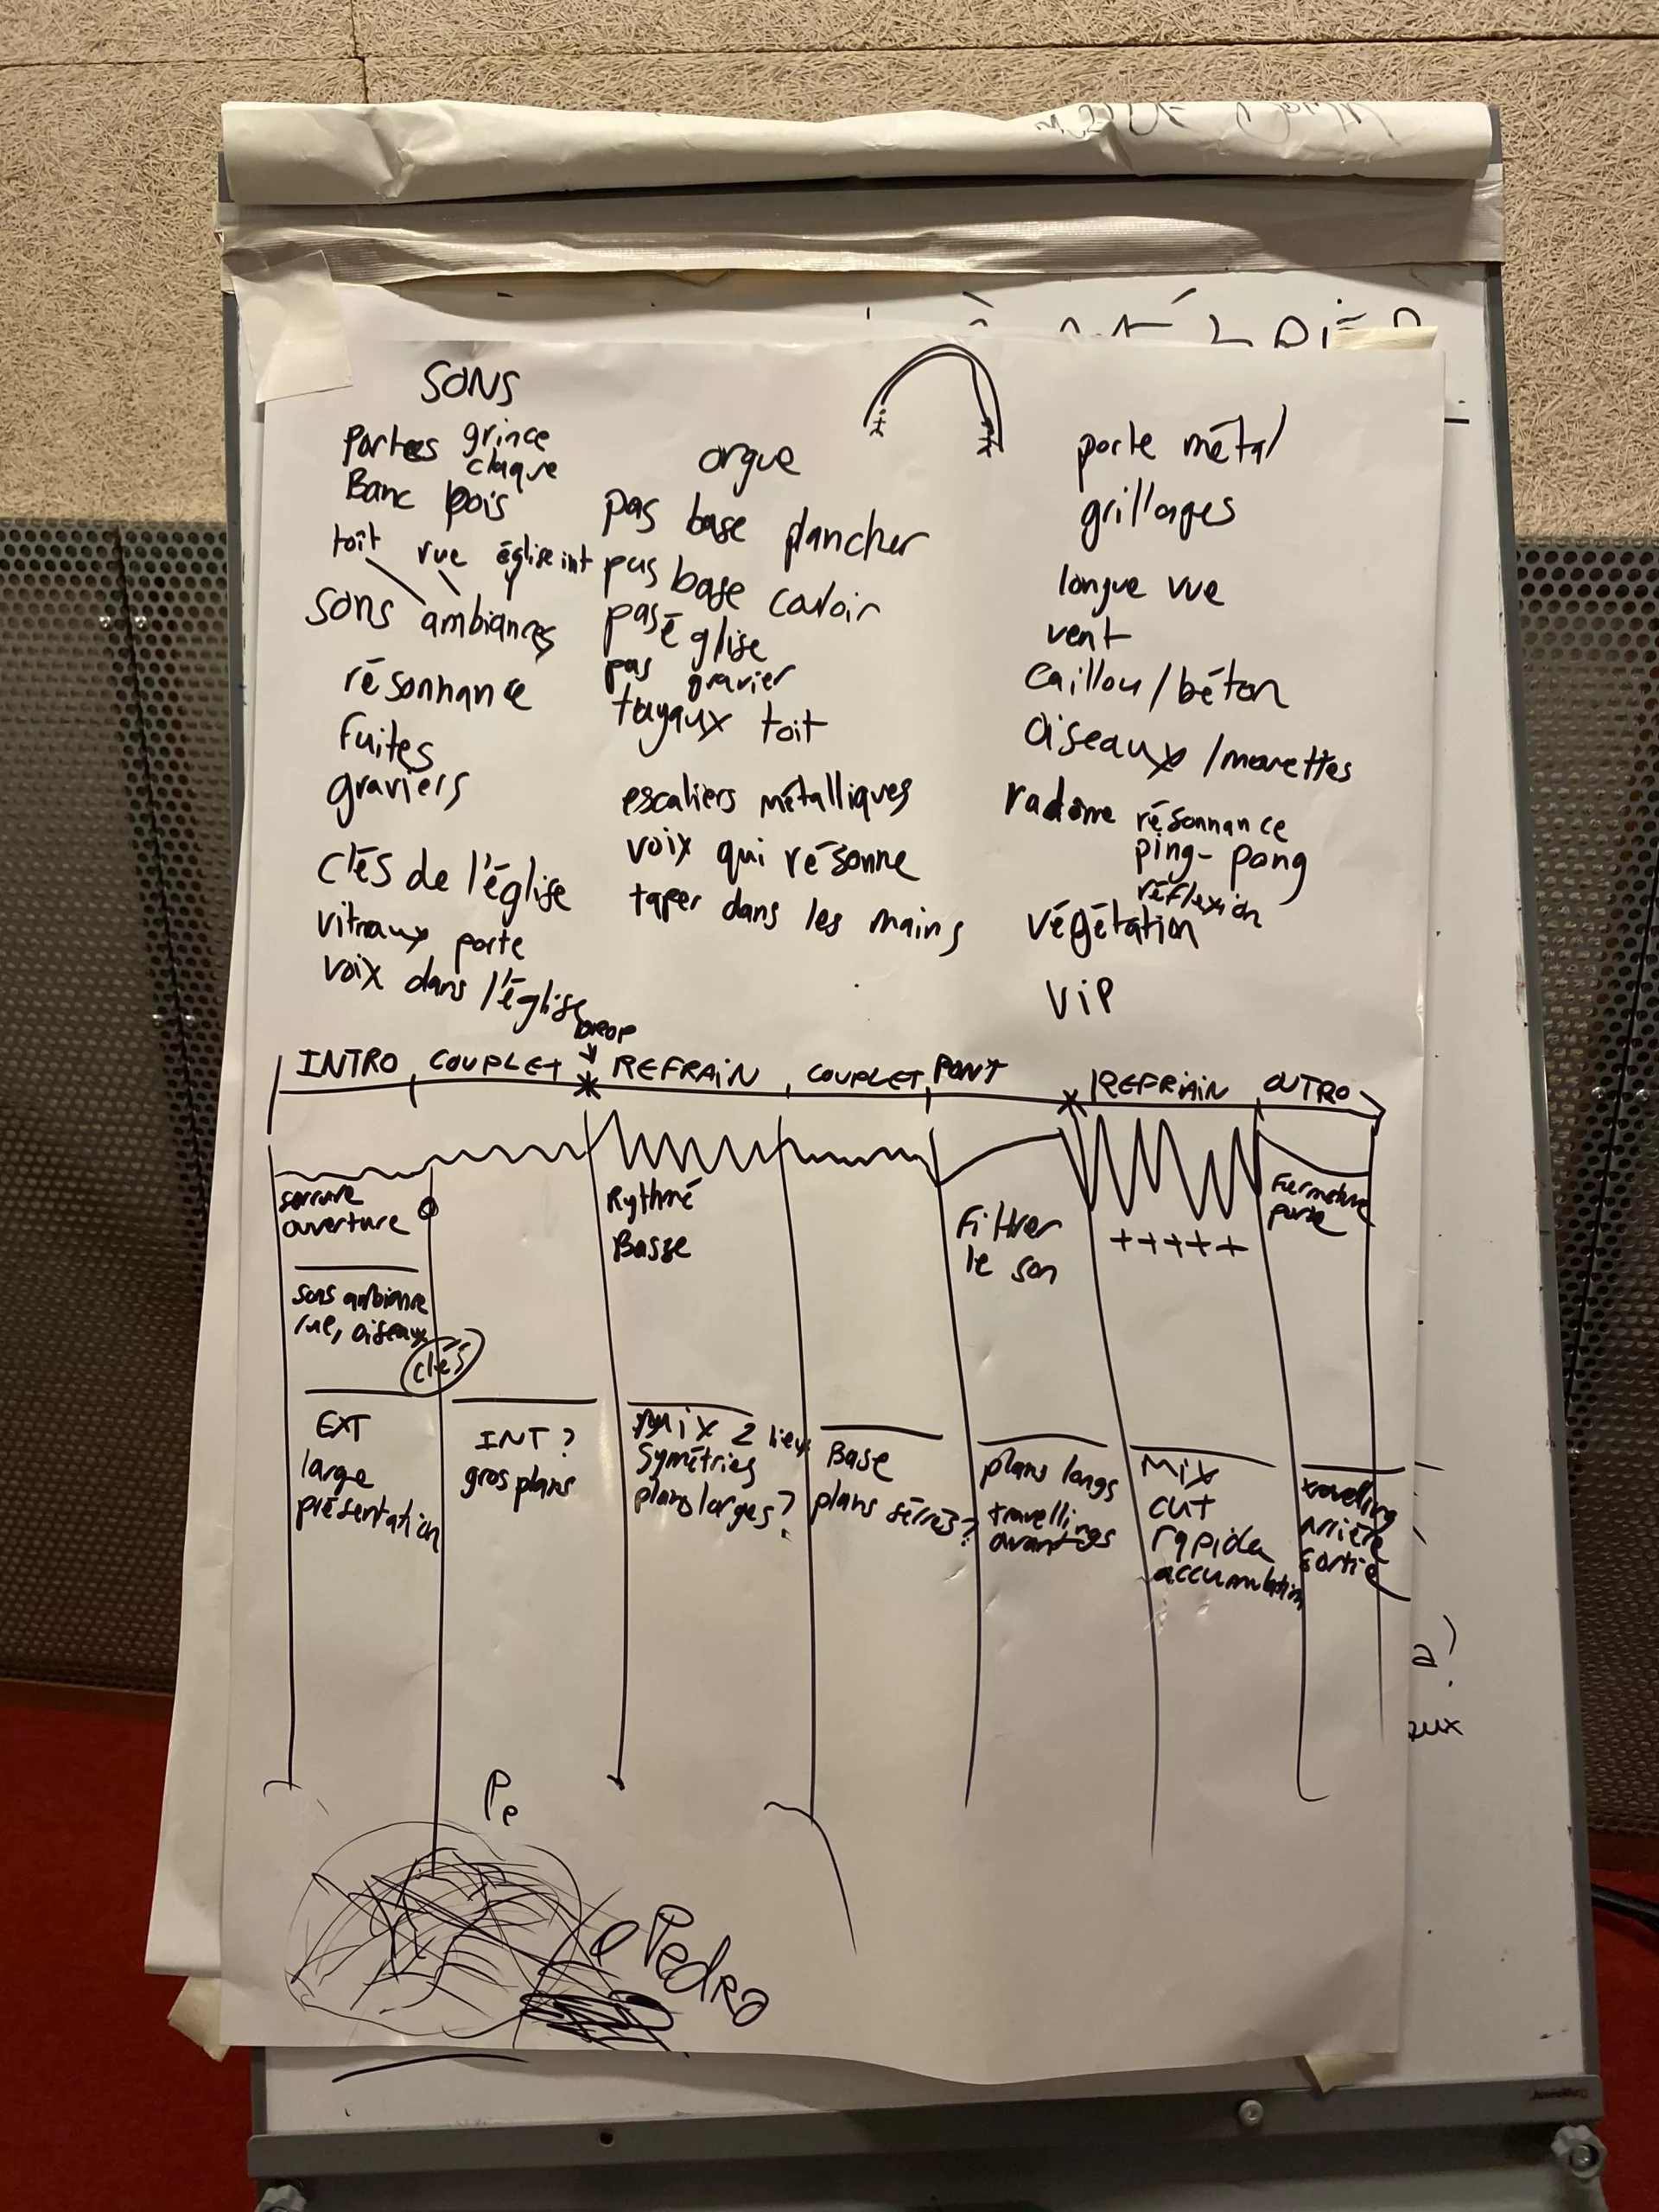 SONS
Portes grince
claque
Banc bois
toit rue église int
sons ambiances
résonnance
fuites
graviers
clés de l'église
vitraux porte
voix dans l'église
orgue
pas base plancher
pas base couloir
pas église
pas gravier
tuyaux toit
escaliers métalliques
voix qui résonne
taper dans les mains
porte métal
grillages
longue vue
vent
caillou/béton
oiseaux/mouettes
radôme résonnance
ping-pong
réflexion
végétation
ViP
DROP
INTRO COUPLET REFRAIN COUPLET PONT REFRAIN OUTRO
serrure
ouverture
sons ambiance
rue, oiseaux
clés
EXT
large
présentation
INT?
gros plans
Rythmé
Basse
Mix 2 lieux
Symétries
plans larges?
Base
plans sérrés?
Filtrer
le son
plans longs
travellings
avant
+++++
Mix
cut
rapide
accumulation
Fermeture
porte
traveling
arrière
sortie
Pe
Pedro
a?
aux